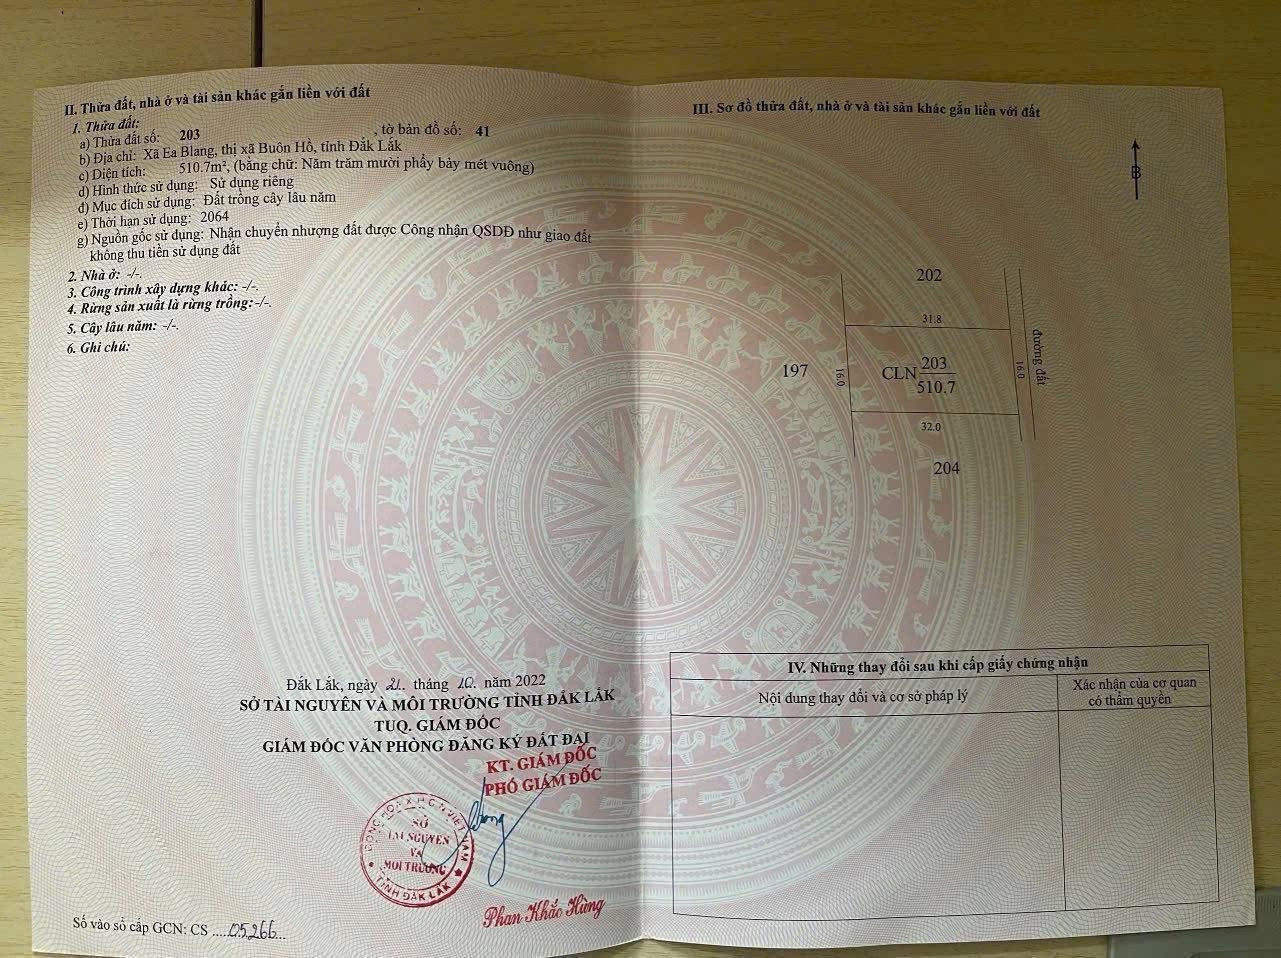 II. Thửa đất, nhà ở và tài sản khác gắn liền với đất
1. Thửa đất:
a) Thửa đất số: 203 , tờ bản đồ số: 41
b) Địa chỉ: Xã Ea Blang, thị xã Buôn Hồ, tỉnh Đắk Lắk
c) Diện tích: 510.7m², (bằng chữ: Năm trăm mười phẩy bảy mét vuông)
d) Hình thức sử dụng: Sử dụng riêng
đ) Mục đích sử dụng: Đất trồng cây lâu năm
e) Thời hạn sử dụng: 2064
g) Nguồn gốc sử dụng: Nhận chuyển nhượng đất được Công nhận QSDĐ như giao đất
không thu tiền sử dụng đất
2. Nhà ở: -/-.
3. Công trình xây dựng khác: -/-.
4. Rừng sản xuất là rừng trồng: -/-.
5. Cây lâu năm: -/-.
6. Ghi chú:
Đắk Lắk, ngày 21. tháng 10. năm 2022
SỞ TÀI NGUYÊN VÀ MÔI TRƯỜNG TỈNH ĐẮK LẮK
TUQ. GIÁM ĐỐC
GIÁM ĐỐC VĂN PHÒNG ĐĂNG KÝ ĐẤT ĐAI
KT. GIÁM ĐỐC
PHÓ GIÁM ĐỐC
CỘNG HÒA X.H.C.N VIỆT NAM
SỞ
TÀI NGUYÊN
VÀ
MÔI TRƯỜNG
TỈNH ĐẮK LẮK
Phan Khắc Hùng
Số vào sổ cấp GCN: CS .....05266...
III. Sơ đồ thửa đất, nhà ở và tài sản khác gắn liền với đất
B
202
31.8
197
16.0
CLN 203
510.7
16.0
đường đất
32.0
204
IV. Những thay đổi sau khi cấp giấy chứng nhận
Nội dung thay đổi và cơ sở pháp lý
Xác nhận của cơ quan
có thẩm quyền